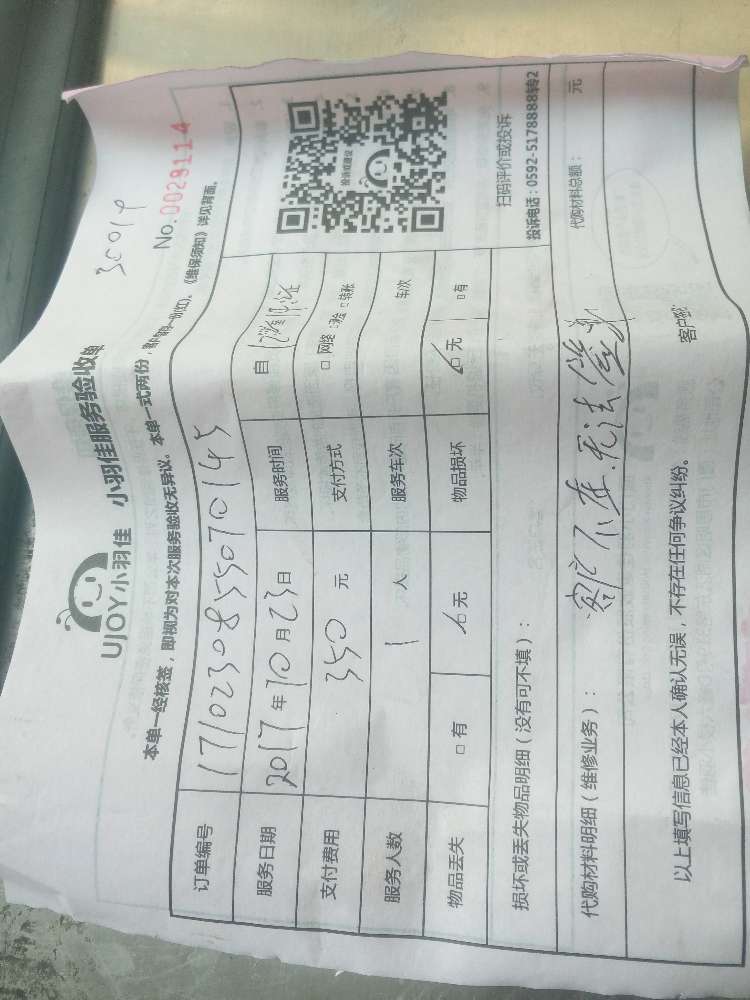 35019
UJOY小羽佳 小羽佳服务验收单
No.0029114
本单一经核签，即视为对本次服务验收无异议。本单一式两份，
《维保须知》详见背面。
订单编号 1710230855070145
服务日期 2017年10月23日 服务时间 自
支付费用 350 元 支付方式 □网络 □现金 □转账
服务人数 1 人 服务车次 车次
物品丢失 □有 □无 物品损坏 □无 □有
投诉或建议
扫码评价或投诉
投诉电话：0592-5178888转2
损坏或丢失物品明细（没有可不填）：
代购材料明细（维修业务）： 代购材料总额： 元
客户不在.无法签单
以上填写信息已经本人确认无误，不存在任何争议纠纷。 客户签